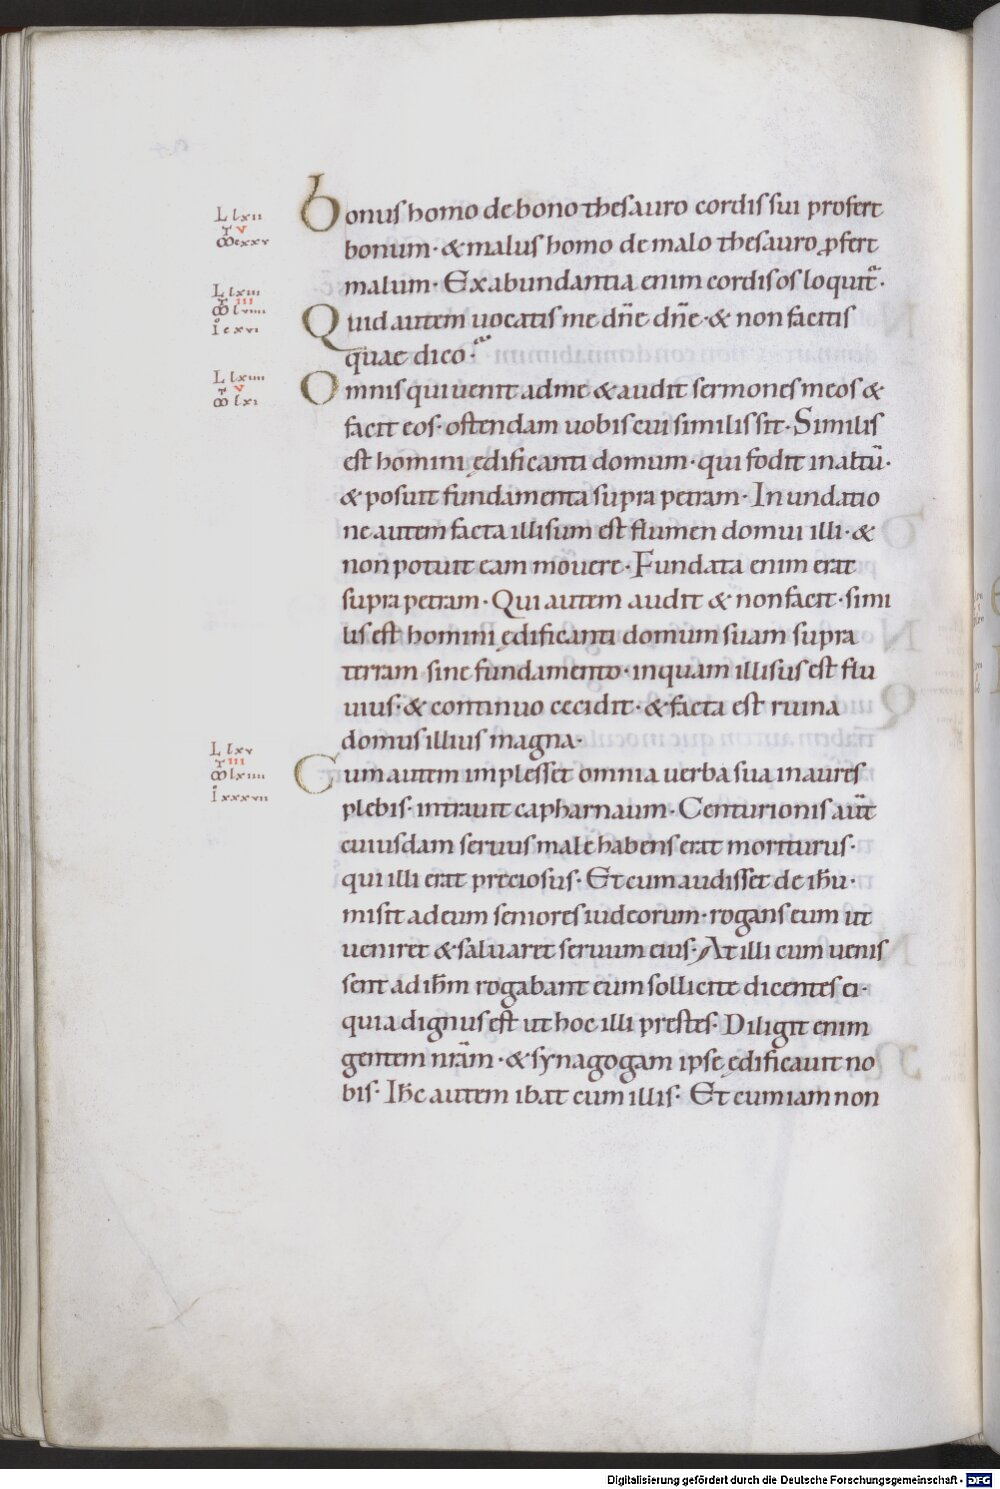 L lxii
T v
M cxxv
Bonus homo de bono thesauro cordis sui profert
bonum· & malus homo de malo thesauro ꝓfert
malum· Ex abundantia enim cordis os loquitᷓ·
L lxiii
T iii
M lviiii
Io cxvi
Quid autem uocatis me dn̄e dn̄e· & non facitis
quae dico·
L lxiiii
T v
M lxi
Omnis qui uenit ad me & audit sermones meos &
facit eos· ostendam uobis cui similis sit· Similis
est homini ędificanti domum· qui fodit in altū·
& posuit fundamenta supra petram· Inundatio
ne autem facta illisum est flumen domui illi· &
non potuit eam mouere· Fundata enim erat
supra petram· Qui autem audit & non facit· simi
lis est homini ędificanti domum suam supra
terram sine fundamento· in quam illisus est flu
uius· & continuo cecidit· & facta est ruina
domus illius magna·
L lxv
T iii
M lxiiii
Io xxxvii
Cum autem implesset omnia uerba sua in aures
plebis· intrauit capharnaum· Centurionis aūt
cuiusdam seruus male habens erat moriturus·
qui illi erat preciosus· Et cum audisset de ihū·
misit ad eum seniores iudeorum· rogans eum ut
ueniret & saluaret seruum eius· At illi cum uenis
sent ad ihm̄ rogabant eum sollicite dicentes ei·
quia dignus est ut hoc illi prestes· Diligit enim
gentem nrām· & synagogam ipse ędificauit no
bis· Ihc̄ autem ibat cum illis· Et cum iam non
Digitalisierung gefördert durch die Deutsche Forschungsgemeinschaft - DFG